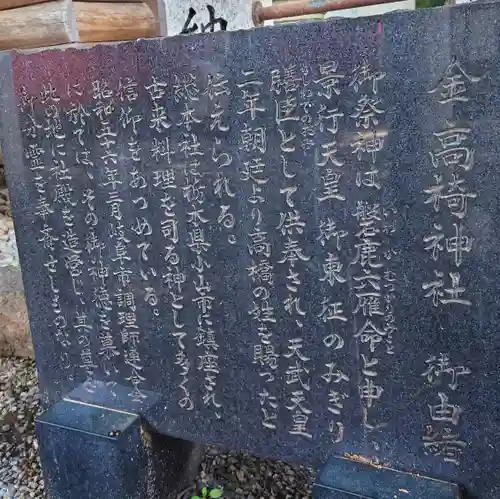 納
金高椅神社 御由緒
御祭神は磐鹿六雁命と申し、
いわかむつかりのみこと
景行天皇御東征のみぎり
膳臣として供奉され、天武天皇
かしわでのおみ
二年朝廷より高橋の姓を賜ったと
伝えられる。
総本社は栃木県小山市に鎮座され、
古来料理を司る神として多くの
信仰をあつめている。
昭和五十六年三月岐阜市調理師連合会
に於ては、その御神徳を慕い
此の地に社殿を造営し、其の
御分霊を奉斎せしものなり